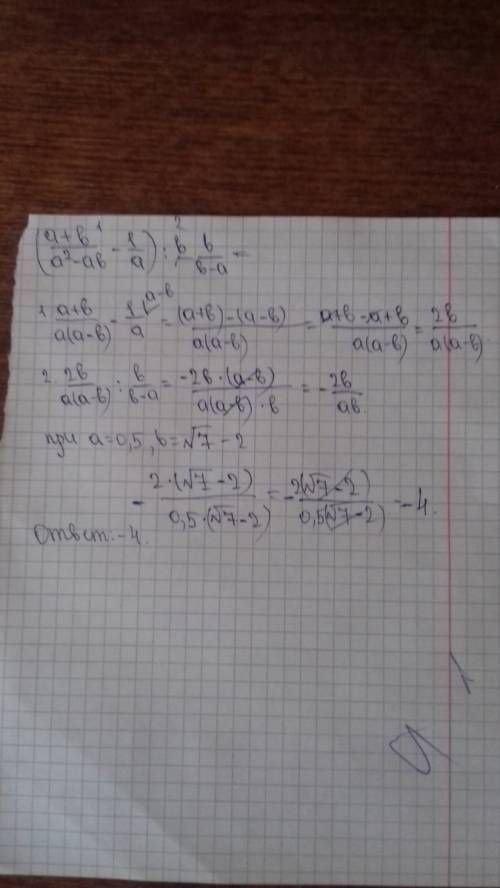 (a+b/a²-ab - 1/a) : b/b-a =
1. a+b/a(a-b) - 1/a = (a+b)-(a-b)/a(a-b) = a+b-a+b/a(a-b) = 2b/a(a-b)
2. 2b/a(a-b) : b/b-a = -2b·(a-b)/a(a-b)·b = -2b/ab
при a=0,5, b=√7-2
- 2·(√7-2)/0,5·(√7-2) = -2(√7-2)/0,5(√7-2) = -4.
Ответ: -4.